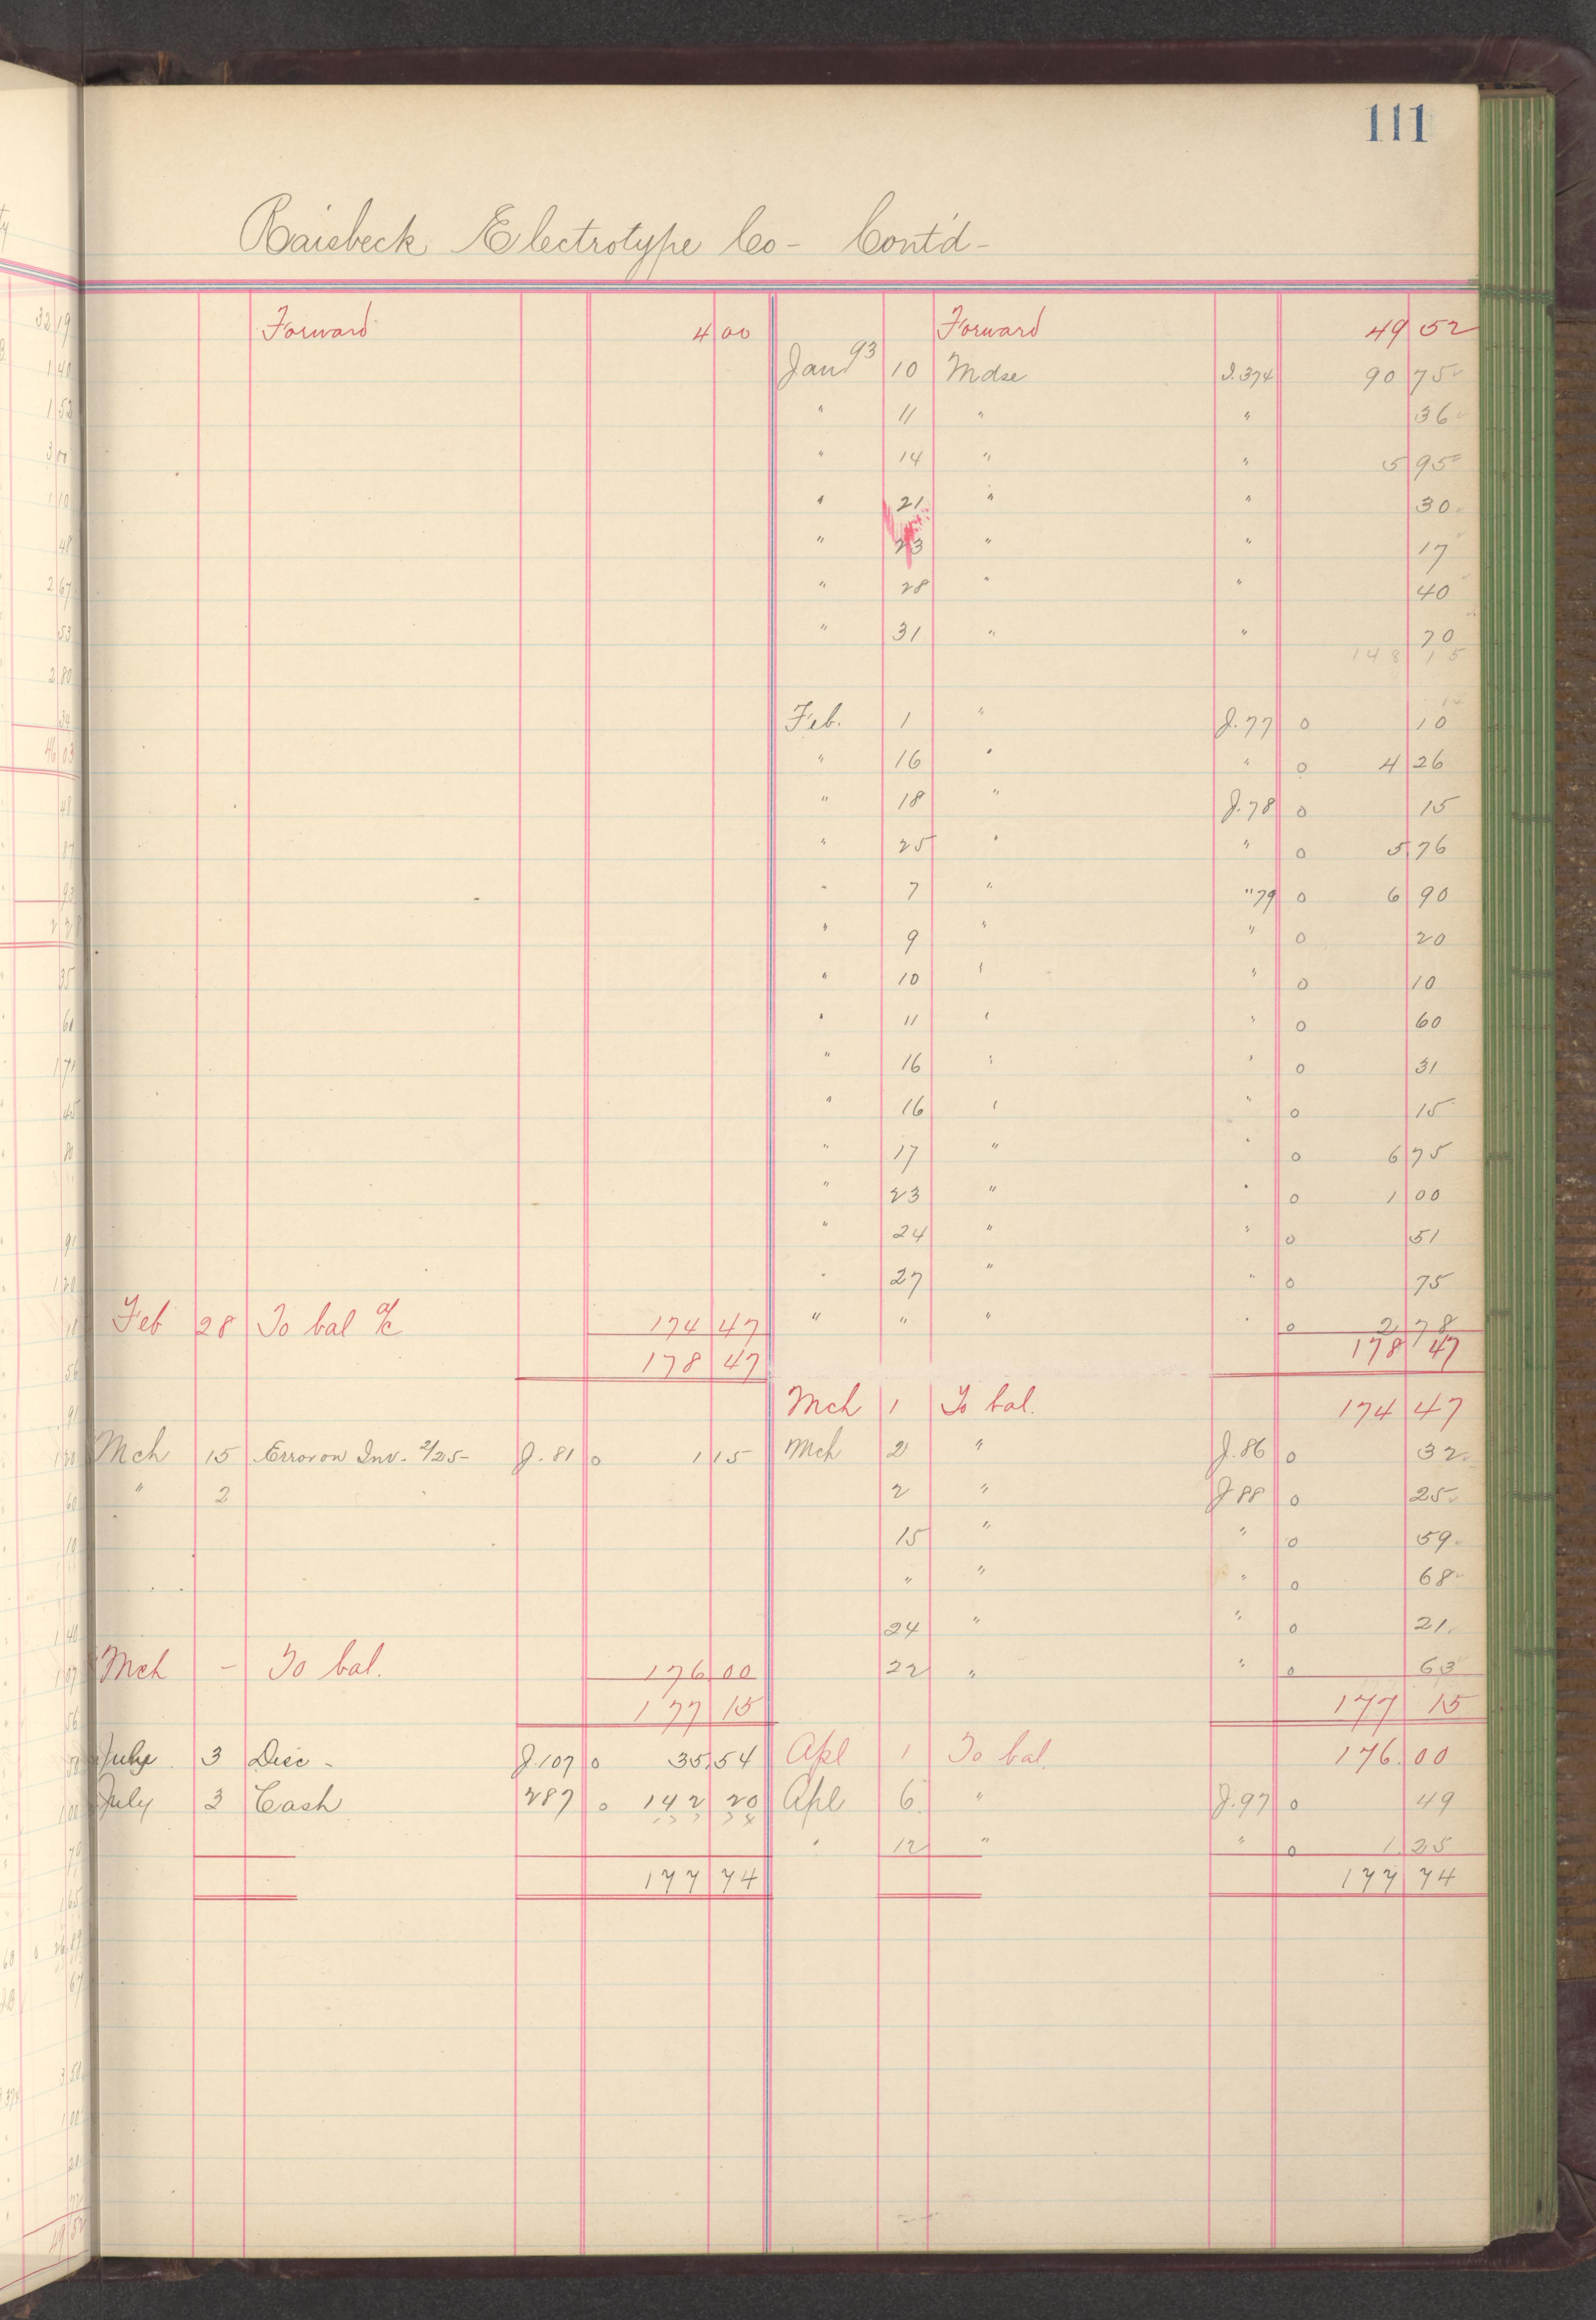 111
Raisbeck Electrotype Co - Cont'd -
Forward 4 00 Forward 49 52
Jan 93 10 Mdse I.374 90 75
" 11 " " 36
" 14 " " 5 95
" 21 " " 30
" 23 " " 17
" 28 " " 40
" 31 " " 70
148 15
Feb. 1 " J.77 o 10
" 16 " " o 4 26
" 18 " J.78 o 15
" 25 " " o 5 76
" 7 " " 79 o 6 90
" 9 " " o 20
" 10 " " o 10
" 11 " " o 60
" 16 " " o 31
" 16 " " o 15
" 17 " " o 6 75
" 23 " " o 1 00
" 24 " " o 51
" 27 " " o 75
Feb 28 To bal a/c 174 47 " " " " o 2 78
178 47 178 47
Mch 1 To bal. 174 47
Mch 15 Error on Inv. 2/25 - J.81 o 1 15 Mch 2 " J.86 o 32
" 2 2 " J 88 o 25
15 " " o 59
" " " o 68
24 " " o 21
Mch - To bal. 176 00 22 " " o 63
177 15 177 15
July 3 Disc - J.107 o 35.54 Apl 1 To bal. 176.00
July 3 Cash 287 o 142 20 Apl 6 " J.97 o 49
" 12 " " o 1.25
177 74 177 74